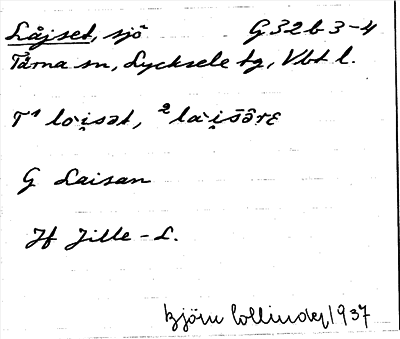 Låjset, sjö G32b3-4
Tärna sn, Lycksele tg, Vbt l.
T¹ lo`i̯sət, ²la`i̯sārɛ
G Laisan
Jf Jille-L.
Björn Collinder, 1937